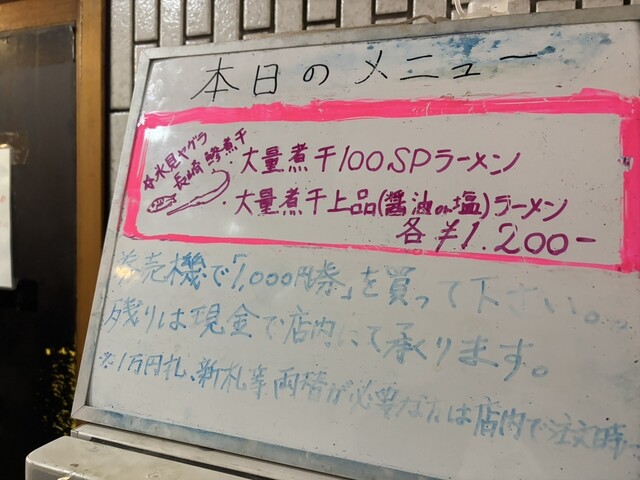 本日のメニュー
☆氷見ヤゲラ
長崎鯵煮干
・大量煮干100SPラーメン
・大量煮干上品(醤油or塩)ラーメン
各¥1.200-
券売機で「1,000円券」を買って下さい。
残りは現金で店内にて承ります。
※1万円札、新札等両替が必要な方は店内で注文時